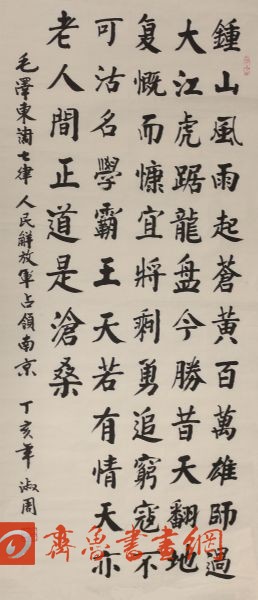 鍾山風雨起蒼黃百萬雄師過
大江虎踞龍盤今勝昔天翻地
復慨而慷宜將剩勇追窮寇不
可沽名學霸王天若有情天亦
老人間正道是滄桑
毛澤東詩七律人民解放軍占領南京 丁亥年 淑周
齊魯書畫網